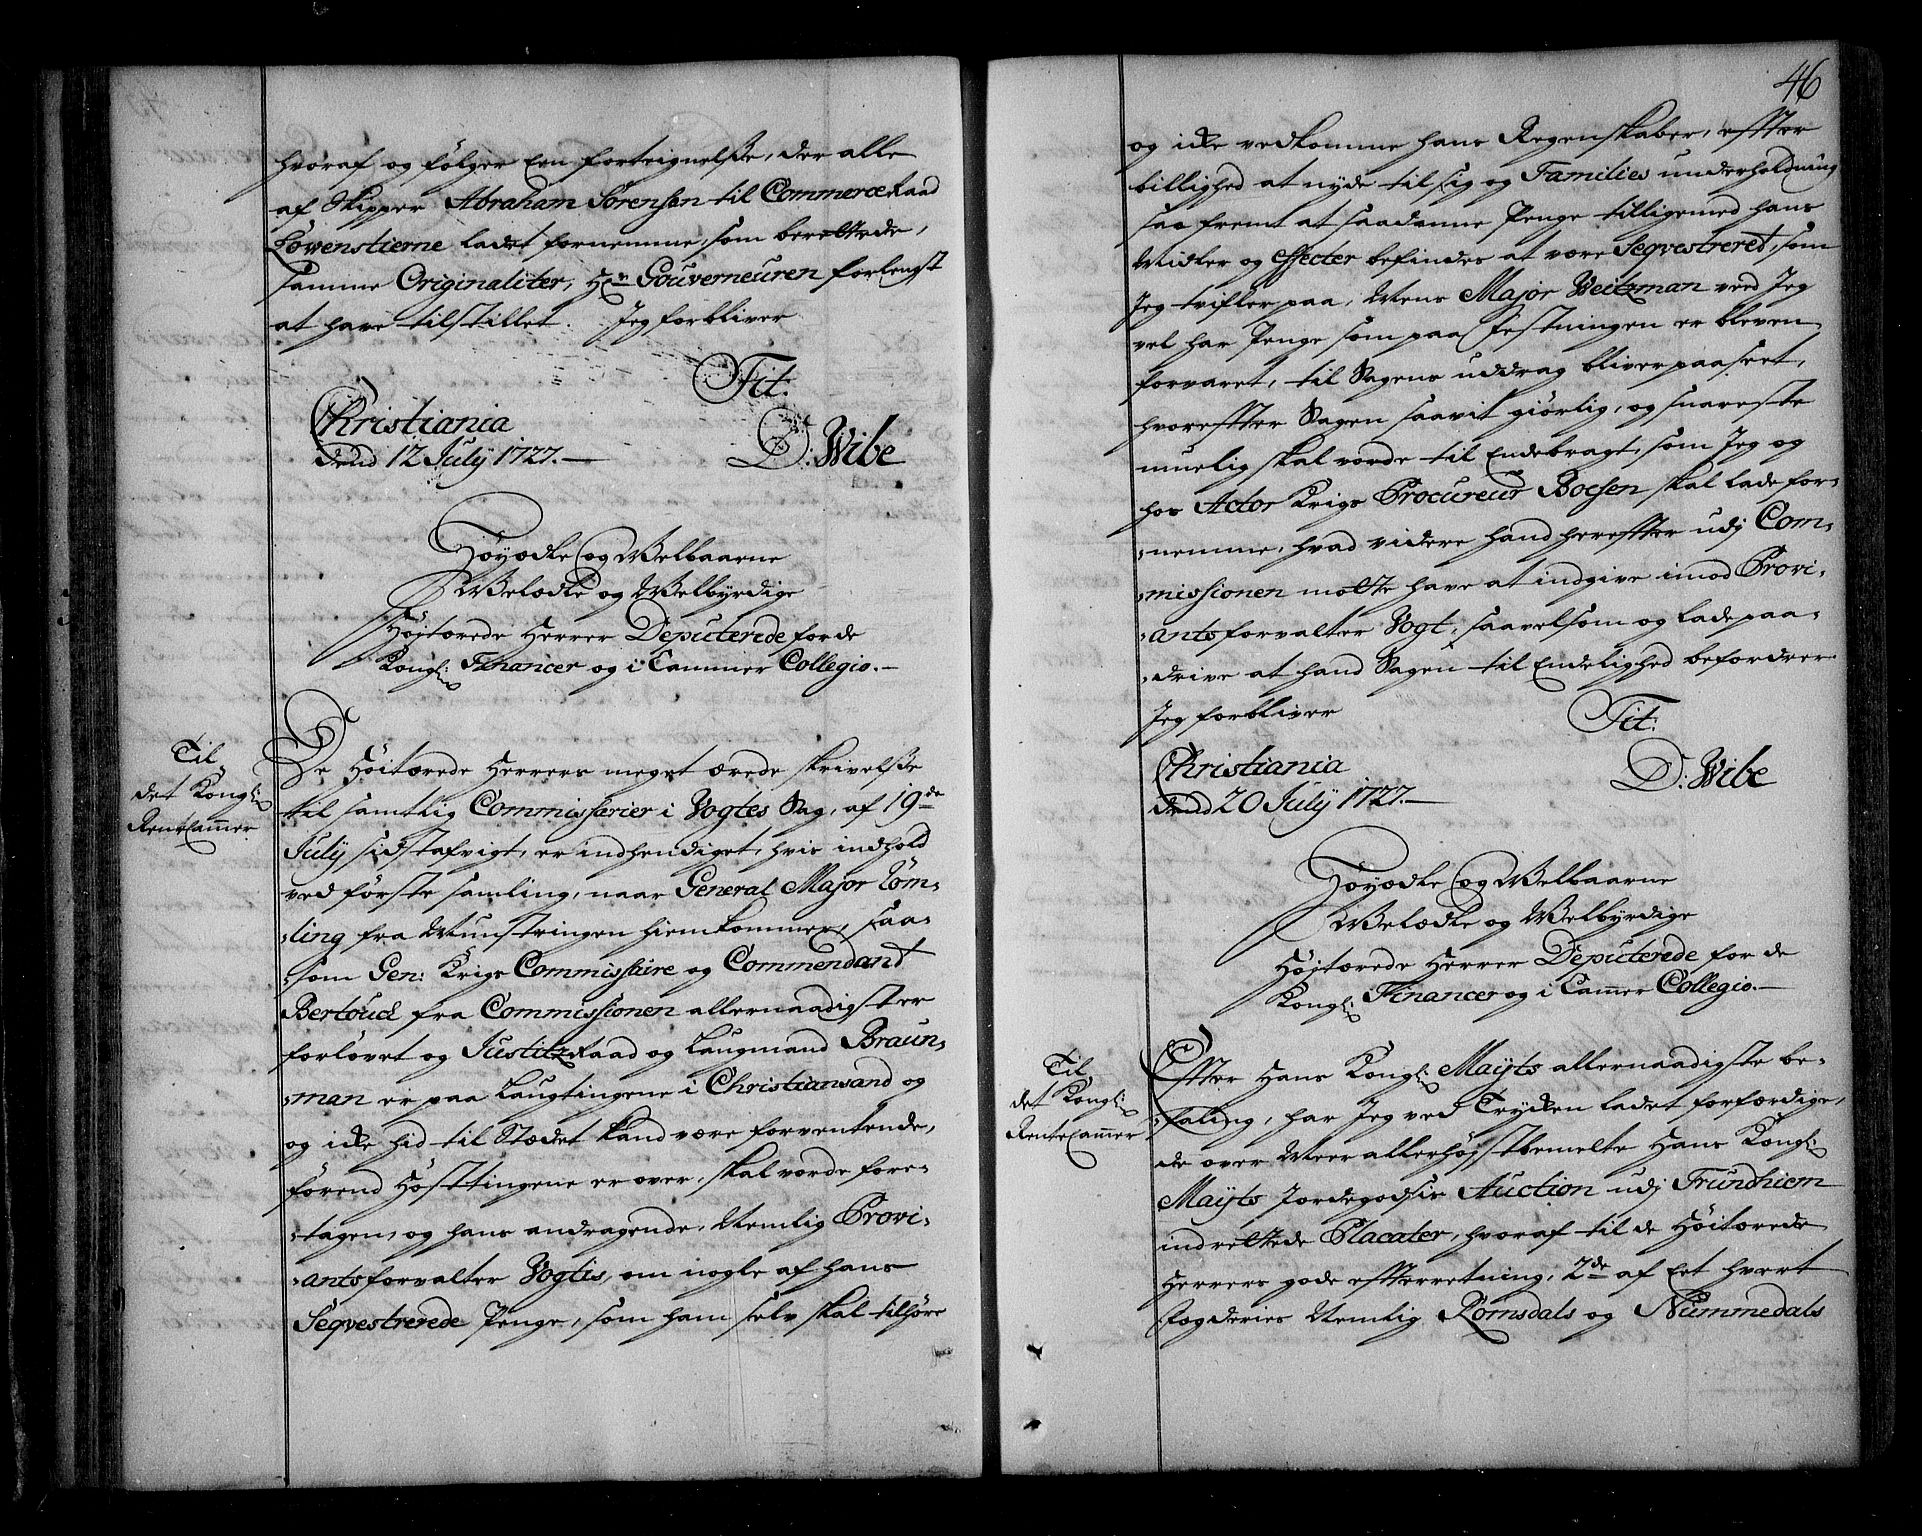 hvoraf og følger Een forteignelße, der alle
af Skipper Abraham Sørensen til CommerceRaad
Løvenstierne ladet fornemme, som berettede,
samme Originaliter, Hr: Gouverneuren forlengst
at have tilstillet. Jeg forbliver
Tit:
Christiania
dend 12 July 1727.
D: Wibe
Høyædle og Welbaarne
Welædle og Welbyrdige
Høitærede Herrer Deputerede for de
Kongl: Financer og i Cammer Collegio.
Til
det Kongl:
RenteCammer
De Høitærede Herrers meget ærede skrivelße
til samtlig Commissarier i Vogtes Sag, af 19de
July sidstafvigt, er indhendiget, hvis indhold
ved første samling, naar General Major Røm-
ling fra Munstringen hiemkommer, saa-
som Gen: Krigs Commissaire og Commendant
Bertouch fra Commissionen allernaadigst er
forlovet og JustitzRaad og Laugmand Braun-
man er paa Laugtingene i Christiansand og
og icke hid til Stædet kand være forventende,
førend Høsttingene er over, skal vorde fore-
tagen, og hans andragende, Nemlig Provi-
antsforvalter Vogtis, om nogle af hans
Seqvestrerede Penge, som ham selv skal tilhøre
46
og icke vedkomme hans Regenskaber, effter
billighed at nyde til sig og Families underholdning
saa fremt at saadanne Penge tilligemed hans
Midler og Effecter befindes at være Seqvestreret, som
Jeg tvifler paa, Mens Major Weitzman veed Jeg
vel har Penge som paa Festningen er bleven
forvaret, til Sagens uddrag bliver paaseet,
hvoreffter Sagen saavit giørlig, og snareste
muelig skal vorde til Endebragt, som Jeg og
hos Actor Krigs Procureur Boesen skal lade for-
nemme, hvad videre hand hereffter udj Com-
missionen motte have at indgive imod Provi-
antsforvalter Vogt, saavelsom og lade paa-
drive at hand Sagen til Endelighed befordrer
Jeg forbliver
Tit:
Christiania
dend 20 July 1727.
D: Wibe
Høyædle og Welbaarne
Welædle og Welbyrdige
Højtærede Herrer Deputerede for de
Kongl: Financer og i Cammer Collegio.
Til
det Kongl:
RenteCammer
Effter Hans Kongl: Mayts allernaadigste be-
faling, har Jeg ved Trycken ladet forfærdige,
de over Meerallerhøjstbemelte Hans Kongl:
Mayts Jordegodsis Auction udj Trundhiem
indrettede Placater, hvoraf til de Høitærede
Herrers gode effterretning, 2de af Eet hvert
Fogderies Nemlig Romsdals og Nummedals